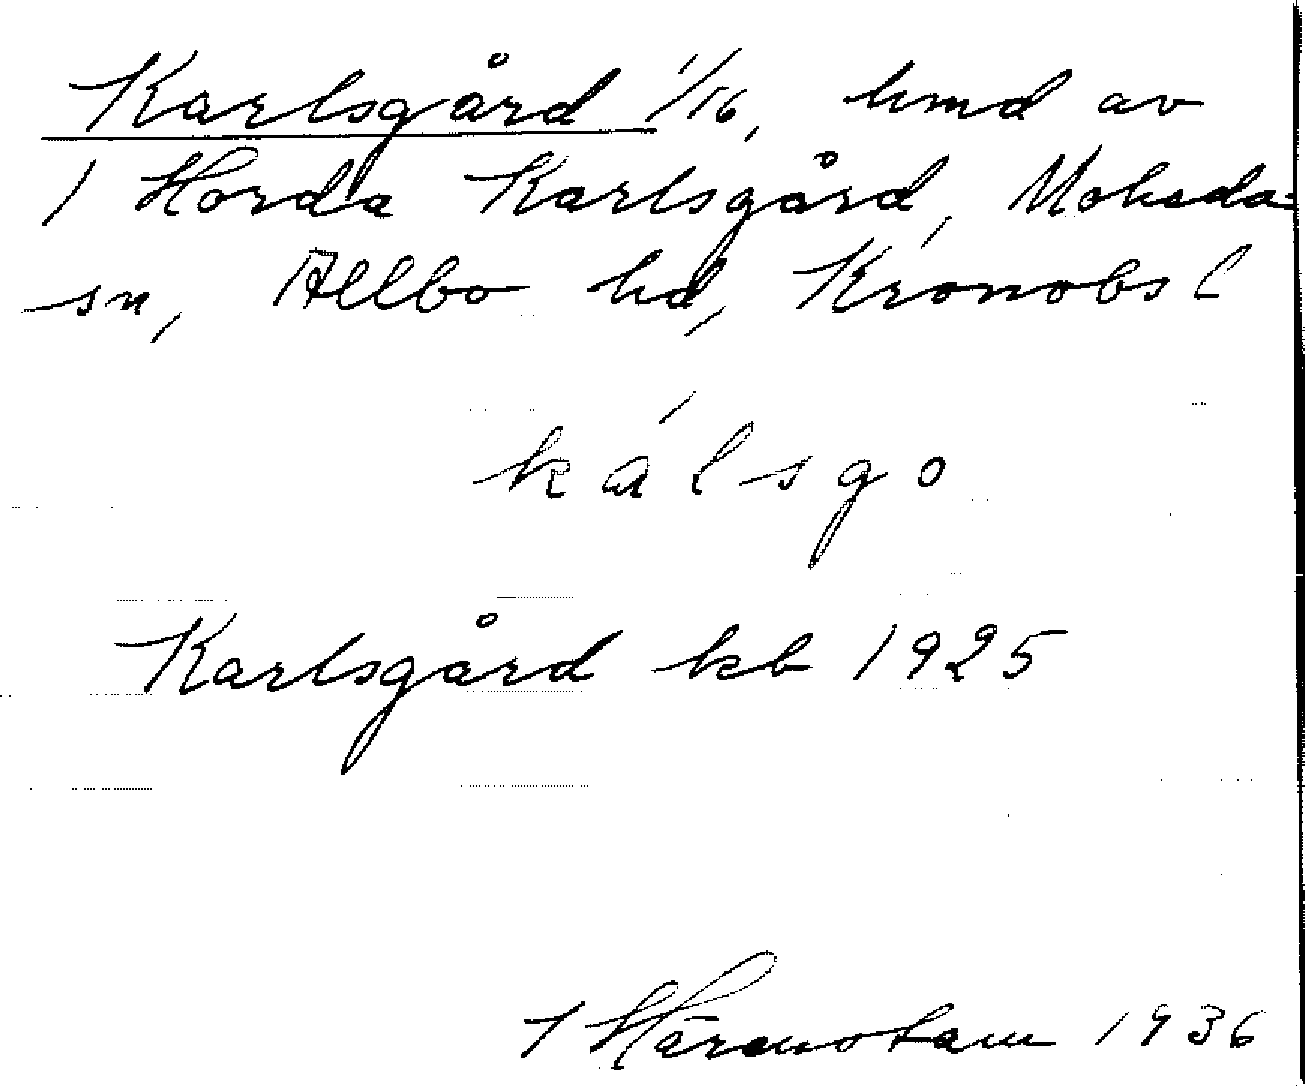 Karlsgård 1/16, hmd av
1 Horda Karlsgård, Moheda
sn, Allbo hd, Kronobs l
kálsgo
Karlsgård kb 1925
1936